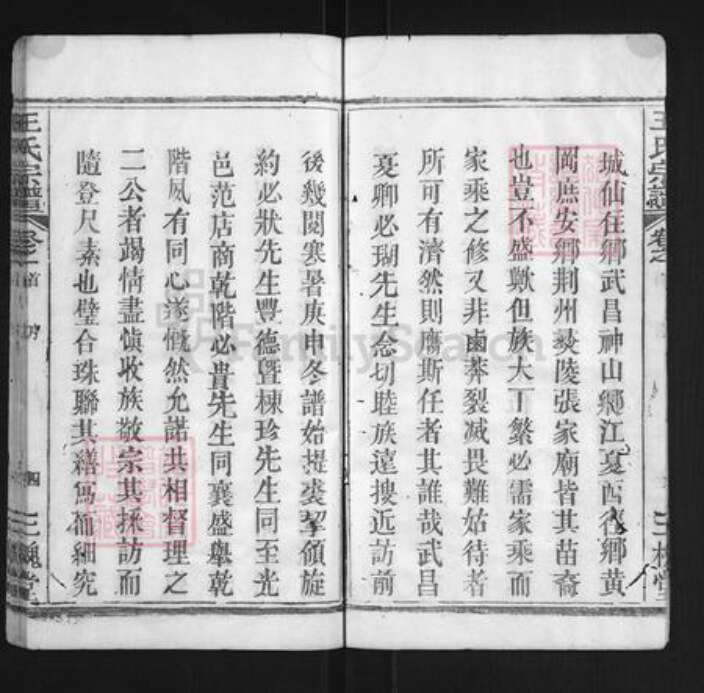 王氏宗譜
卷之
三槐堂
城仙住鄉武昌神山鄉江夏西鄉黃
岡庶安鄉荆州彛陵張家廟皆其苗裔
也豈不盛歟但族大丁繁必需家乘而
家乘之修又非鹵莽裂滅畏難姑待者
所可有濟然則膺斯任者其誰哉武昌
夏卿必瑚先生念切睦族遠搜近訪前
後幾閱寒暑庚申冬譜始提裘挈領旋
約必狀先生豐德暨棟珍先生同至光
邑范店商乾階必貴先生同襄盛舉乾
階夙有同心遂慨然允諾共相督理之
二公者竭情盡愼收族敬宗其採訪而
隨登尺素也璧合珠聯其繕寫而細究
王氏宗譜
卷之首
四
三槐堂
FamilySearch